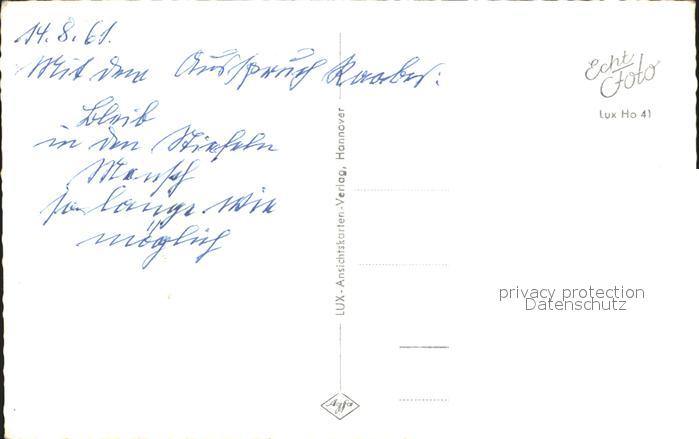 14.8.61.
Mit dem Ausspruch Raabes:
Bleib
in den Stiefeln
Mensch
so lange wie
möglich
LUX-Ansichtskarten-Verlag, Hannover
Agfa
Echt
Foto
Lux Ho 41
privacy protection
Datenschutz